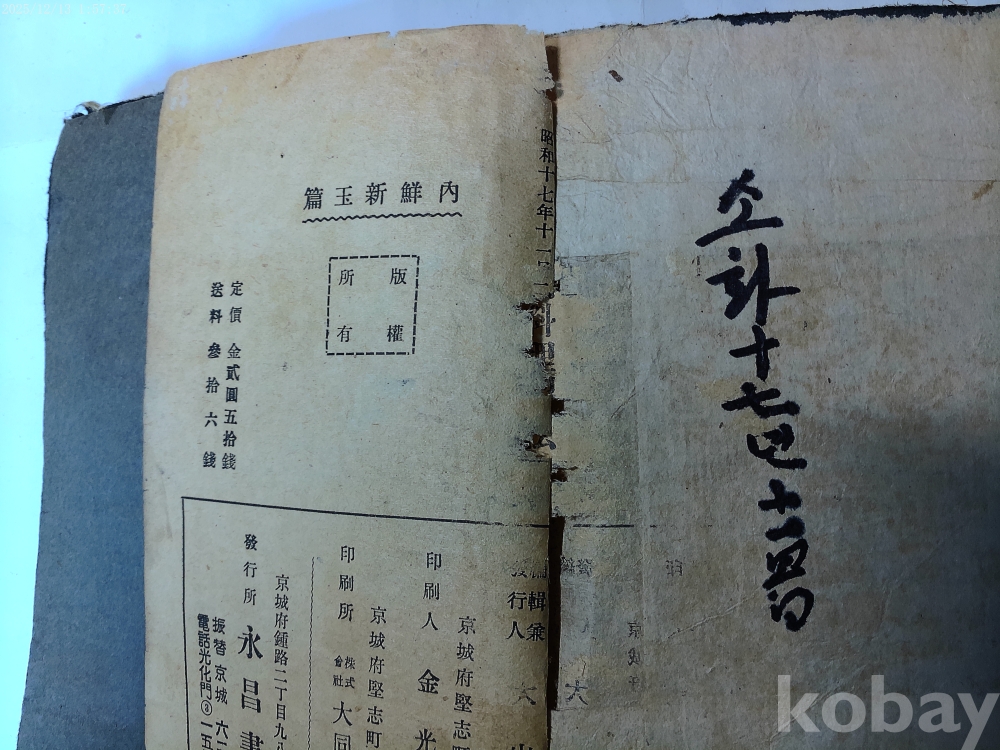 소화十七
昭和十七年十一
內鮮新玉篇
版權
所有
定價 金貳圓五拾錢
送料 參拾六錢
編輯兼
發行人
京城府堅志町
印刷人 金光
京城府堅志町
印刷所 株式會社 大同
京城府鍾路二丁目九八
發行所 永昌書
振替京城 六
電話光化門③一五
kobay